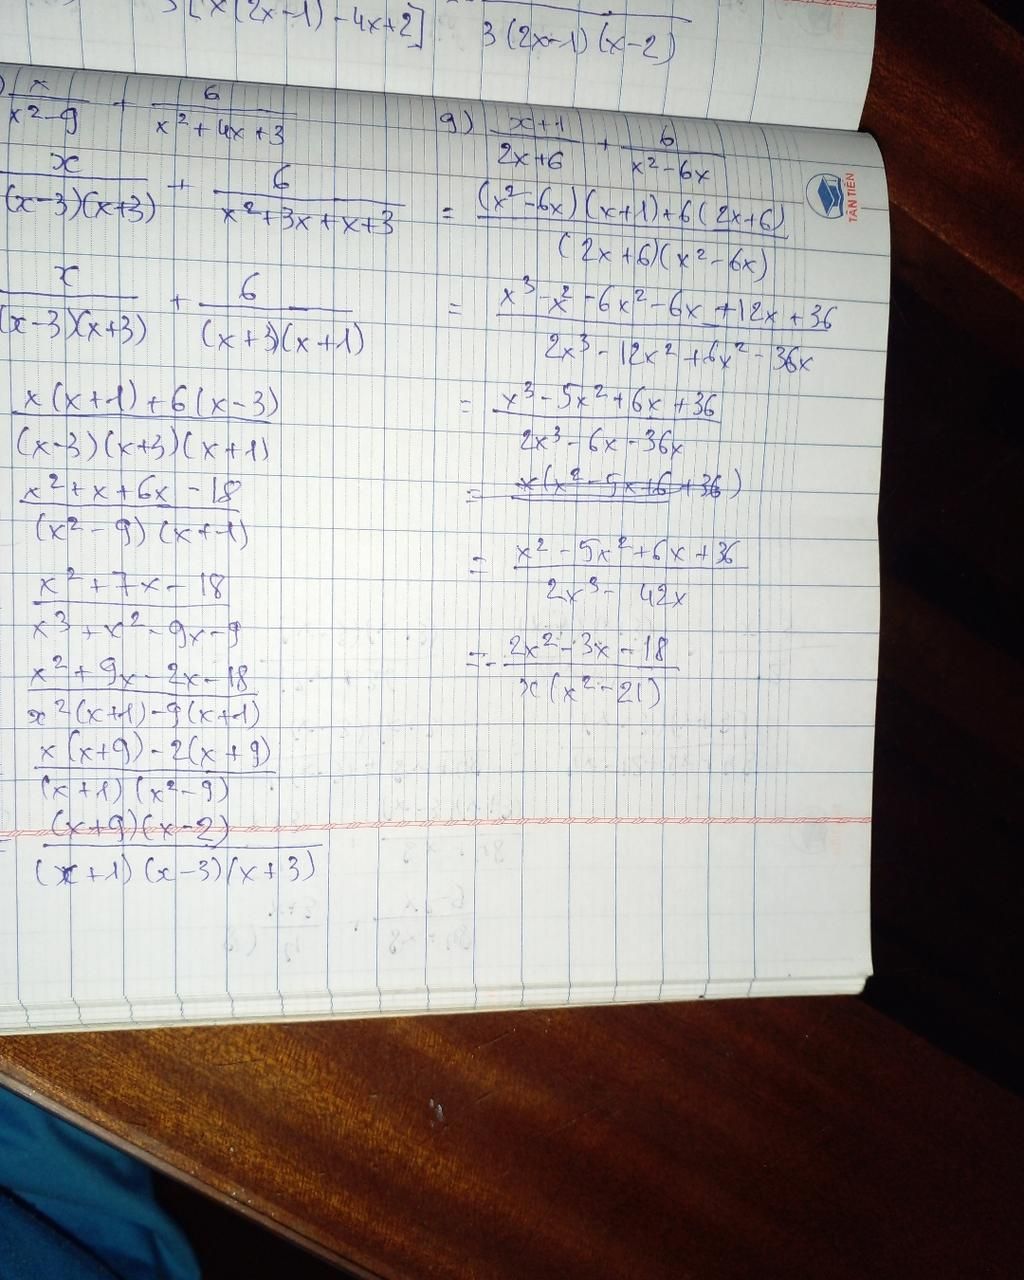 3[x(2x-1)-4x+2]
3(2x-1)(x-2)
) x/(x²-9) + 6/(x²+4x+3)
x/((x-3)(x+3)) + 6/(x²+3x+x+3)
x/((x-3)(x+3)) + 6/((x+3)(x+1))
(x(x+1)+6(x-3))/((x-3)(x+3)(x+1))
(x²+x+6x-18)/((x²-9)(x+1))
(x²+7x-18)/(x³+x²-9x-9)
(x²+9x-2x-18)/(x²(x+1)-9(x+1))
(x(x+9)-2(x+9))/((x+1)(x²-9))
= ((x+9)(x-2))/((x+1)(x-3)(x+3))
g) (x+1)/(2x+6) + 6/(x²-6x)
= ((x²-6x)(x+1)+6(2x+6))/((2x+6)(x²-6x))
= (x³-x²-6x²-6x+12x+36)/(2x³-12x²+6x²-36x)
= (x³-5x²+6x+36)/(2x³-6x-36x)
= x(x²-5x+6+36)
= (x²-5x²+6x+36)/(2x³-42x)
=- (2x²-3x-18)/(x(x²-21))
TÂN TIẾN